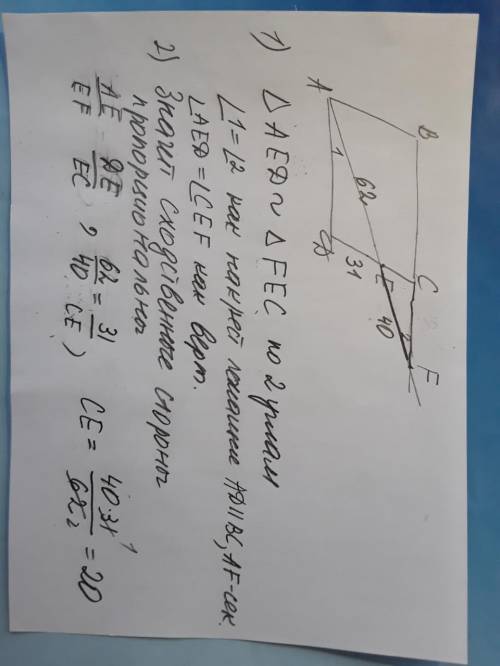 A
B
C
F
E
D
1
2
62
31
40
1) △AED ~ △FEC по 2 углам
∠1=∠2 как накрест лежащие AD||BC, AF-сек.
∠AED=∠CEF как верт.
2) Значит сходственные стороны
пропорциональны
AE/EF = DE/EC, 62/40 = 31/CE) CE = 40·31/62 = 20